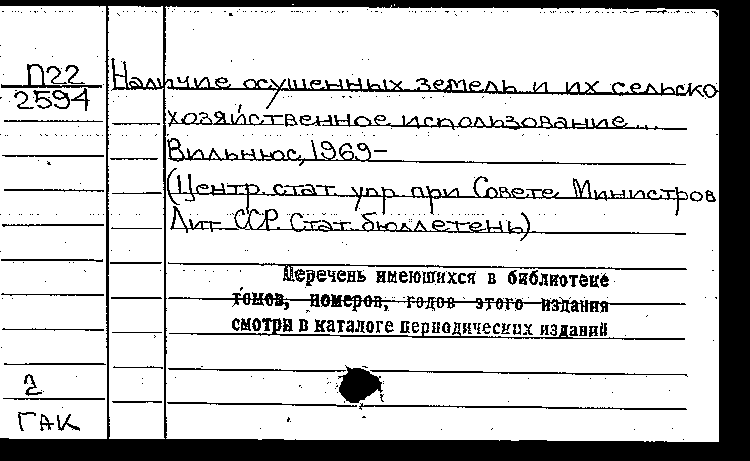 П22
2594
Наличие осушенных земель и их сельско
хозяйственное использование...
Вильнюс, 1969–
(Центр. стат. упр. при Совете Министров
Лит. ССР. Стат. бюллетень)
Перечень имеющихся в библиотеке
томов, номеров, годов этого издания
смотри в каталоге периодических изданий
2
ГАК